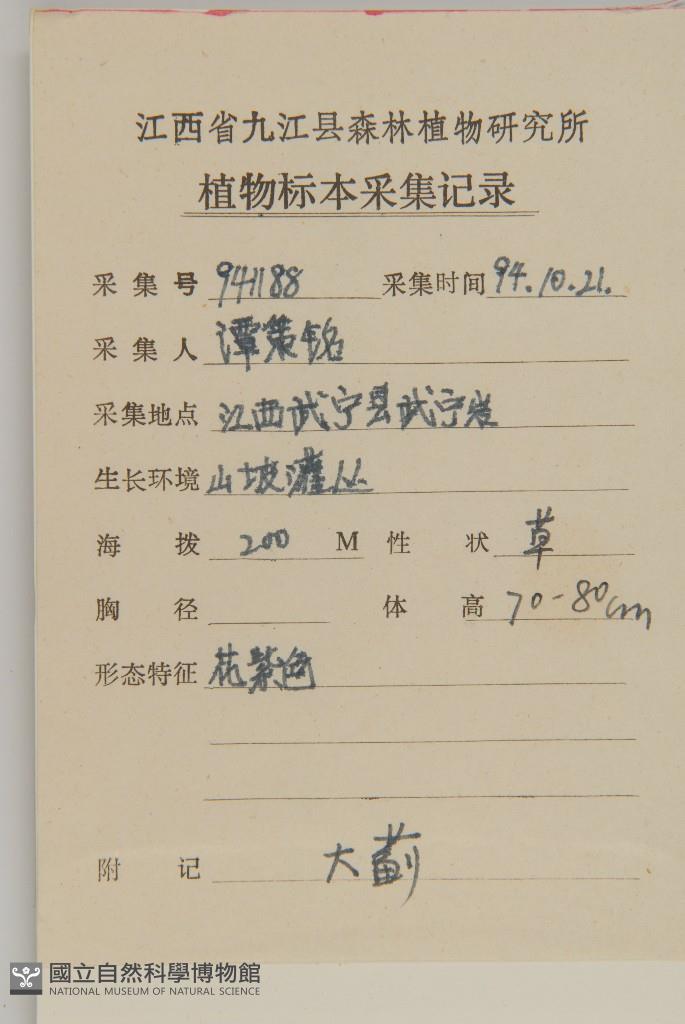 江西省九江县森林植物研究所
植物标本采集记录
采集号 941188 采集时间 94.10.21.
采集人 谭策铭
采集地点 江西武宁县武宁岩
生长环境 山坡灌丛
海拨 200 M 性状 草
胸径 体高 70-80cm
形态特征 花紫色
附记 大蓟
國立自然科學博物館
NATIONAL MUSEUM OF NATURAL SCIENCE